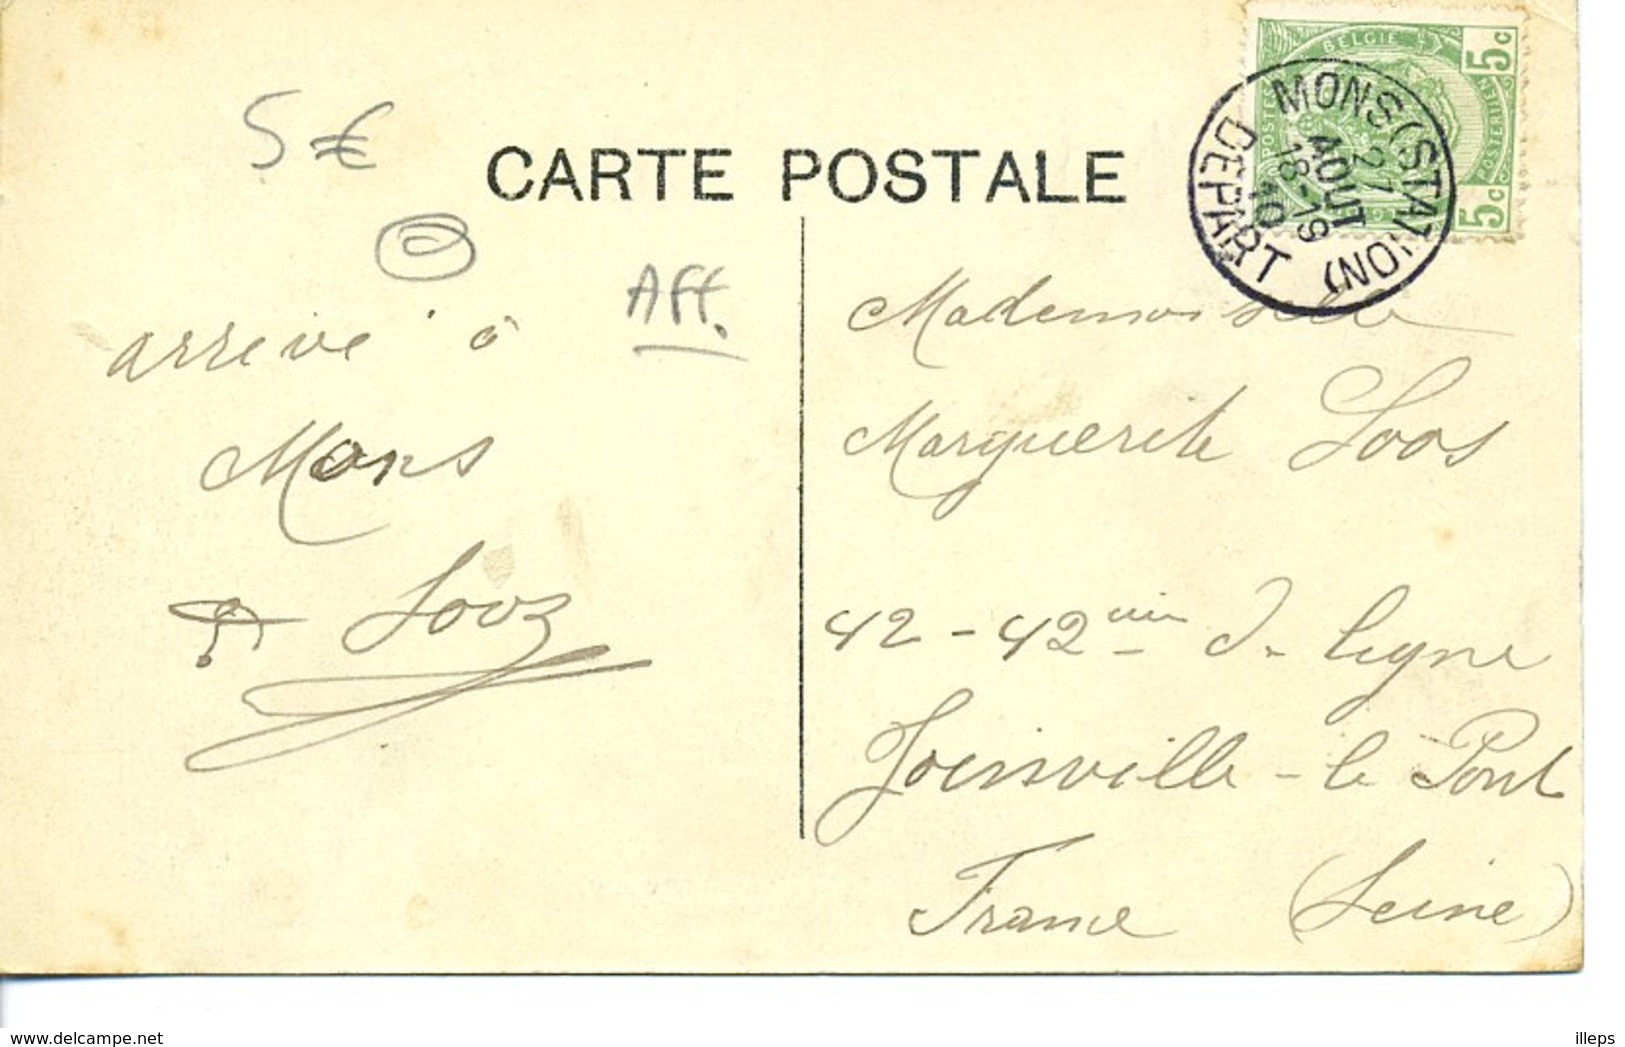 5 €
CARTE POSTALE
Aff.
arrivé à
Mons
Looz
BELGIE
5c
5c
POSTES
POSTERIJEN
MONS (STATION)
21
AOUT
18-19
10
DEPART
Mademoiselle
Marguerite Loos
42 - 42 de ligne
Joinville - le Pont
France (Seine)
www.delcampe.net
illeps